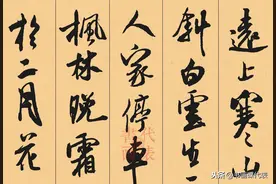 遠上寒山
斜白雲生
人家停車
楓林晚霜
於二月花